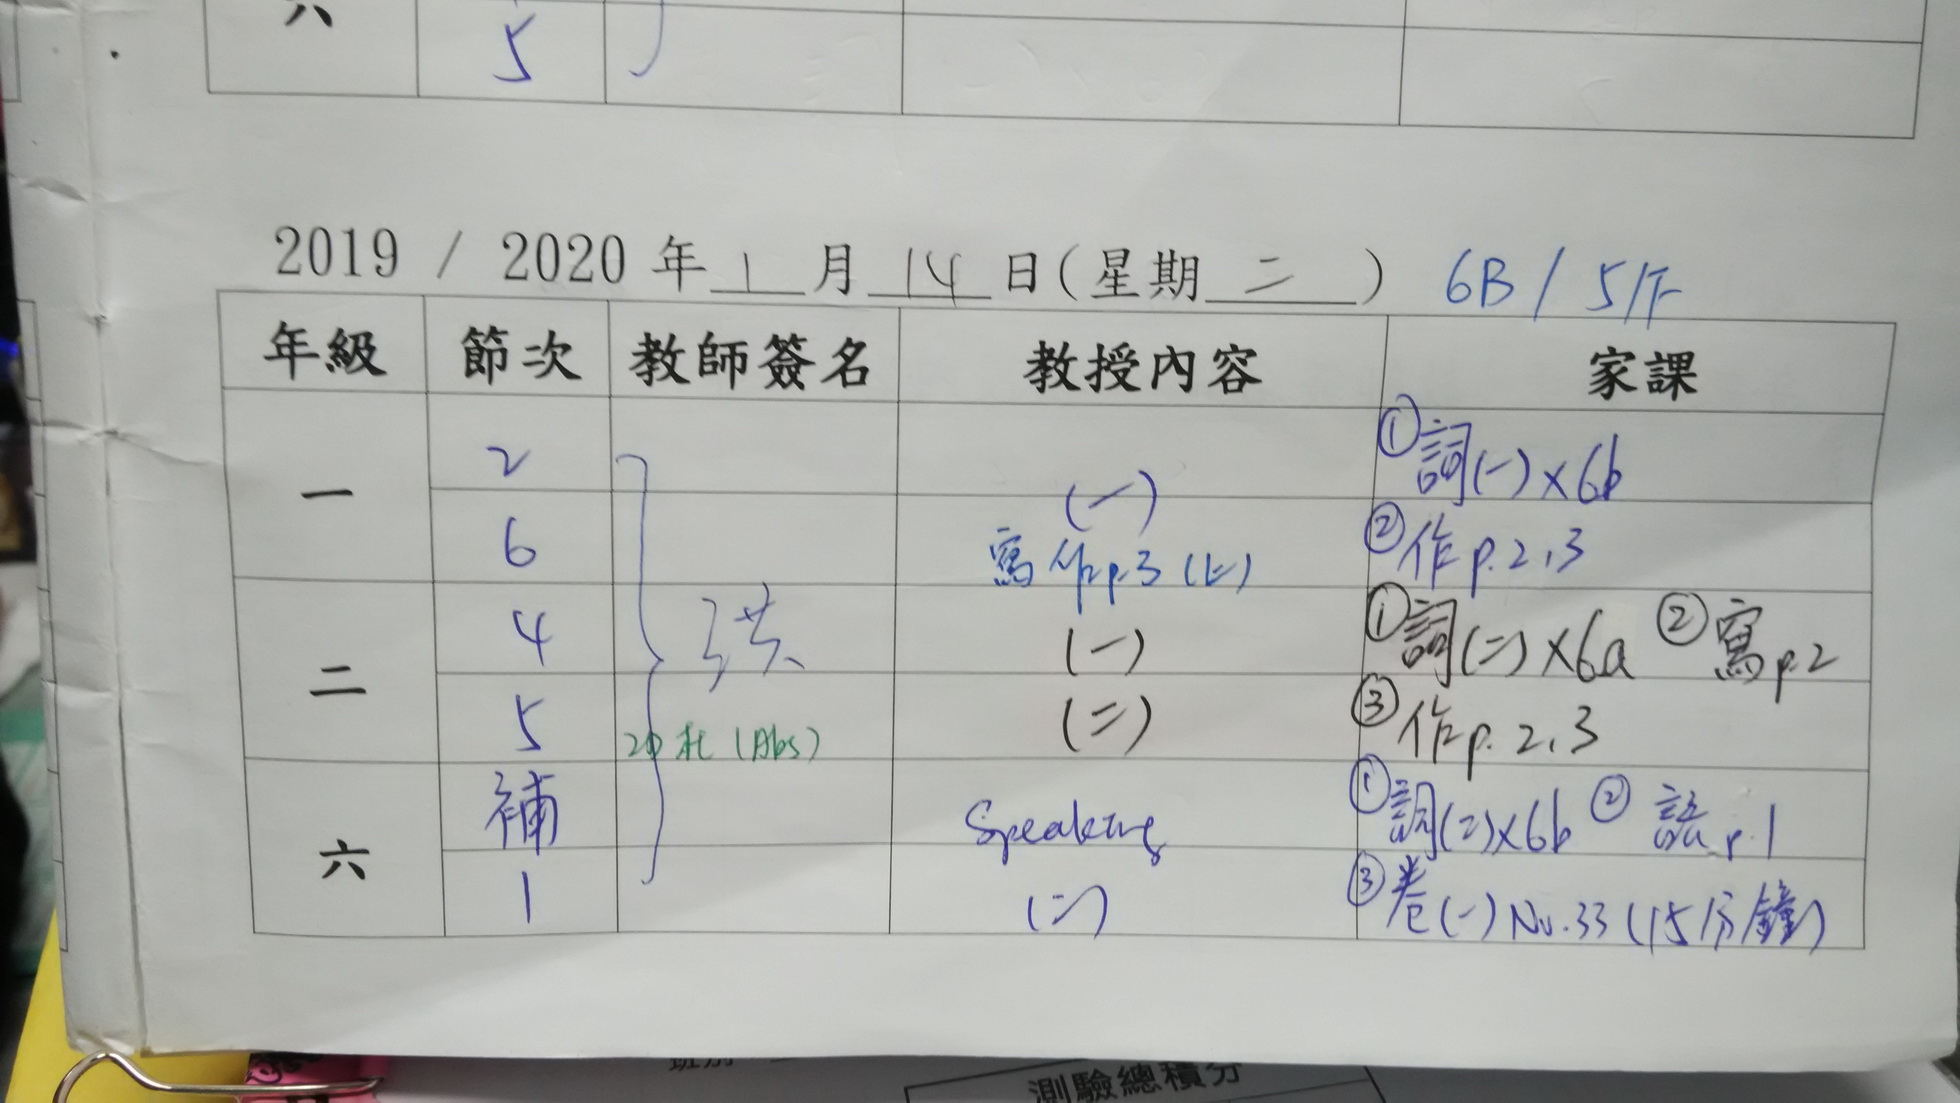 六
5
2019 / 2020 年 1 月 14 日(星期 二 ) 6B / 5/F
年級 節次 教師簽名 教授內容 家課
一 2 ①詞(一)×6b
6 (一) ②作p.2,3
寫作p.3(上)
二 4 (一) ①詞(二)×6a ②寫p.2
5 (二) ③作p.2,3
(Abs)
六 補 Speaking ①詞(二)×6b ②p.1
1 (二) ③卷(一)No.33(15分鐘)
測驗總積分